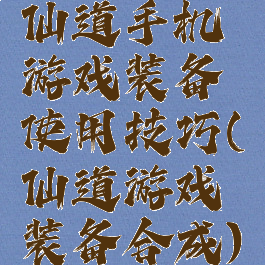 仙道手机
游戏装备
使用技巧(
仙道游戏
装备合成)